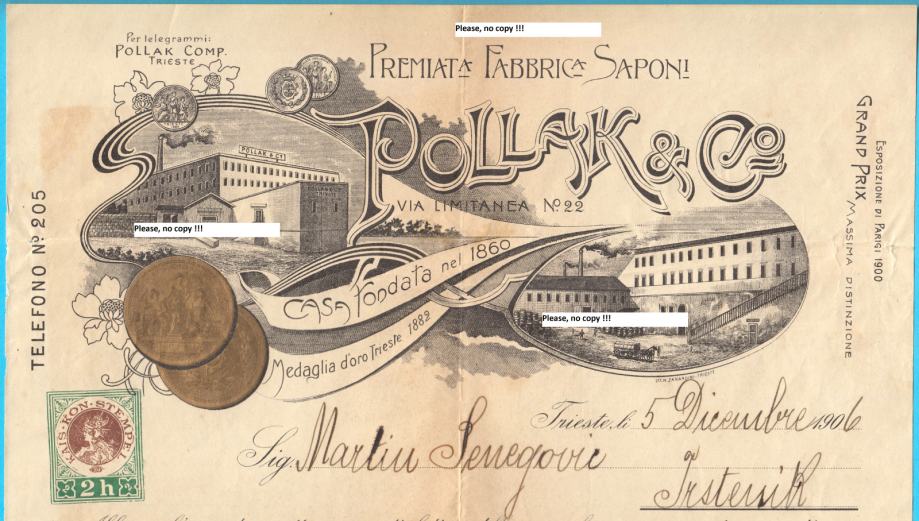 Please, no copy !!!
Per telegrammi:
POLLAK COMP.
TRIESTE
PREMIATA FABBRICA SAPONI
POLLAK & Co
VIA LIMITANEA No. 22
POLLAK & Co
Please, no copy !!!
CASA fondata nel 1860
Medaglia d'oro Trieste 1882
Please, no copy !!!
TELEFONO No 205
ESPOSIZIONE DI PARIGI 1900
GRAND PRIX
MASSIMA DISTINZIONE
KAIS·KÖN·STEMPEL
2h
Trieste, li 5 Dicembre 1906
Sig. Martin Senegovic
Trstenik